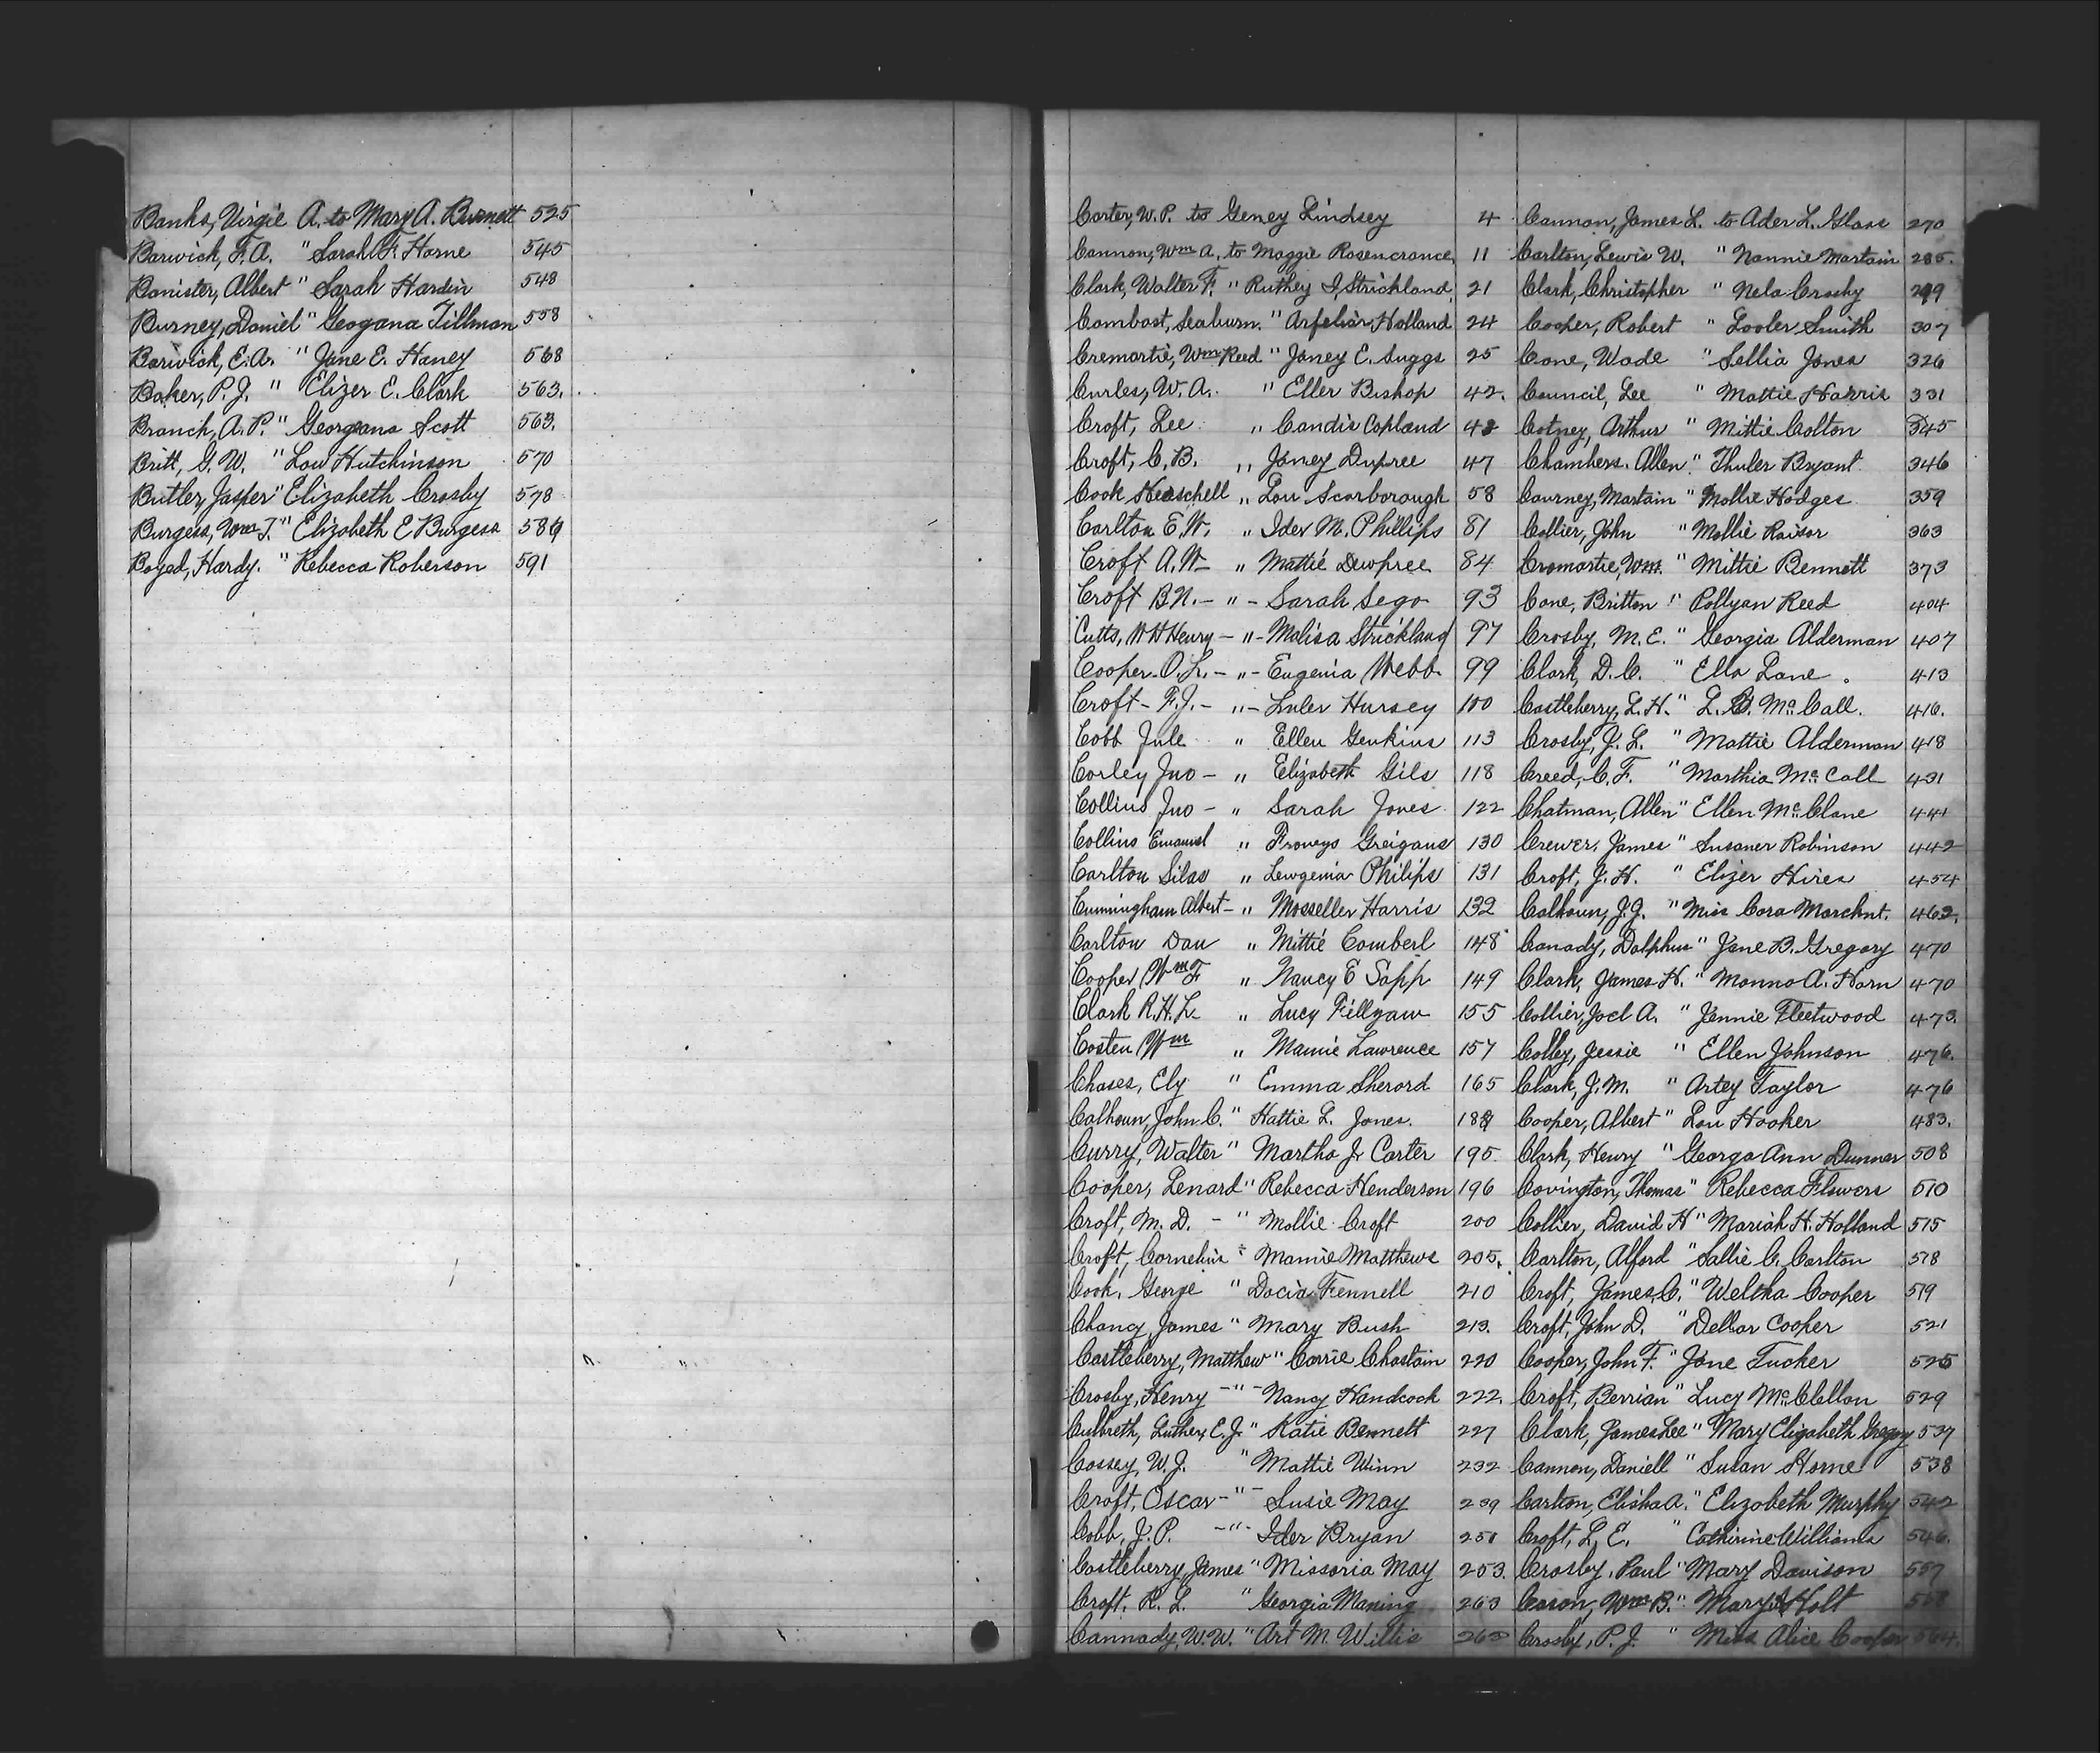 Banks, Virgie A. to Mary A. Burnett 525
Barwick, F. A. " Sarah F. Horne 545
Banister, Albert " Sarah Hardin 548
Burney, Daniel " Geogana Tillman 558
Barwick, E. A. " Jane E. Haney 568
Baker, P. J. " Elizer E. Clark 563.
Branch, A. P. " Georgeana Scott 563.
Britt, G. W. " Lou Hutchinson 570
Butler, Jasper " Elizabeth Crosby 578
Burgess, Wm J. " Elizabeth E Burgess
Boyed, Hardy. " Rebecca Roberson 591
Carter, W. P. to Geney Lindsey 4
Cannon, Wm A. to Maggie Rosencrance, 11
Clark, Walter F. " Ruthey I, Strickland, 21
Combast, Seaburn. " Arfeliar Holland 24
Cremartie, Wm Reed " Janey E. Suggs 25
Curles, W. A. " Eller Bishop 42.
Croft, Lee " Candis Copland
Croft, C. B. " Janey Dupree 47
Cook Heaschell " Lou Scarborough 58
Carlton E. W. " Ider M. Phillips 81
Croft A. W. " Mattie Dewpree 84
Croft B N. - " - Sarah Sego 93
Cutts, W H Henry - " - Malisa Strickland 97
Cooper. O. L. - " - Eugenia Webb 99
Croft - F. J. - " - Luler Hursey 100
Cobb Jule " Ellen Genkins 113
Corley Jno - " Elizabeth Gils 118
Collins Jno - " Sarah Jones 122
Collins Emanuel " Froneys Greigans 130
Carlton Silas " Lewgenia Philips 131
Cunningham Albert - " Mosseller Harris 132
Carlton Dan " Mittie Comberl 148
Cooper, Wm F " Nancy E Sapp 149
Clark R. H. L. " Lucy Fillyaw 155
Costen Wm " Mamie Lawrence 157
Chases, Ely " Emma Sherord 165
Calhoun, John C. " Hattie L. Jones.
Curry, Walter " Martha J. Carter 195
Cooper, Lenard " Rebecca Henderson 196
Croft, M. D. - " Mollie Croft 200
Croft, Cornelius " Mamie Matthews 205.
Cook, George " Docia Fennell 210
Chancy, James " Mary Bush 213.
Castleberry, Matthew " Carrie Chastain 220
Crosby, Henry - " - Nancy Handcock 222.
Culbreth, Luther, E. J. " Katie Bennett 227
Cossey, W. J. " Mattie Winn 232
Croft, Oscar - " - Susie May 239
Cobb, J. P. - " - Ider Bryan 251
Castleberry, James " Missoria May 253.
Croft, R. L. " Georgia Maning 263
Cannady, W. W. " Art M. Willis
Cannon, James L. to Ader L. Glass 270
Carlton, Lewis W. " Nannie Martain 285.
Clark, Christopher " Nela Crosby 299
Cooper, Robert " Looler Smith 307
Cone, Wade " Sellia Jones 326
Council, Lee " Mattie Harris 331
Cotney, Arthur " Mittie Colton 345
Chambers. Allen " Thuler Bryant 346
Courney, Martain " Mollie Hodges 359
Collier, John " Mollie Raisor 363
Cromartie, Wm. " Mittie Bennett 373
Cone, Britton " Pollyan Reed 404
Crosby, M. E. " Georgia Alderman 407
Clark, D. C. " Ella Lane. 413
Castleberry, L. H. " L. B. McCall. 416.
Crosby, J. L. " Mattie Alderman 418
Creed, C. F. " Marthia McCall 431
Chatman, Allen " Ellen McClane 441
Crewer, James " Susaner Robinson 442
Croft, J. H. " Elizer Hires 454
Calhoun, J. J. " Miss Cora Marchnt. 462.
Canady, Dolphus " Jane B. Gregory 470
Clark, James H. " Manno A. Horn 470
Collier, Joel A. " Jennie Fleetwood 473.
Colley, Jessie " Ellen Johnson 476.
Clark, J. M. " Artey Taylor 476
Cooper, Albert " Lou Hooker 483.
Clark, Henry " George Ann Dunner 508
Covington, Thomas " Rebecca Flowers 510
Collier, David H " Mariah H. Holland 515
Carlton, Alford " Sallie C. Carlton 518
Croft, James C. " Weltha Cooper 519
Croft, John D. " Dellar Cooper 521
Cooper, John F. " Jane Tucker 525
Croft, Berrian " Lucy McClellan 529
Clark, James Lee " Mary Elizabeth Gregory 537
Cannon, Daniell " Susan Horne 538
Carlton, Elisha A. " Elizabeth Murphy 542
Croft, L. E. " Cathirine Williams 546.
Crosby, Paul " Mary Davison 557
Cason, Wm B. " Mary Holt
Crosby, P. J. " Miss Alice Cooper 564.